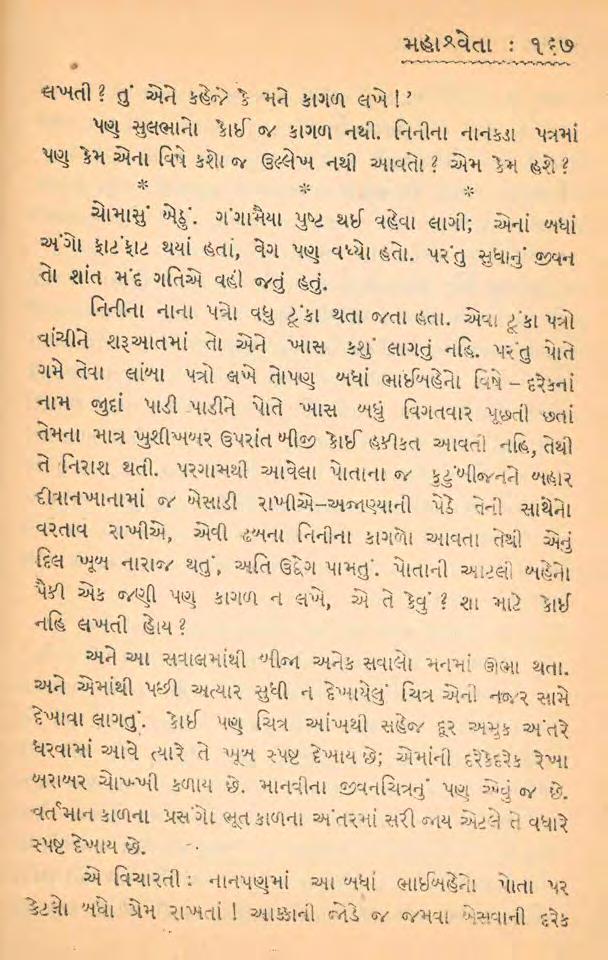 મહાશ્વેતા : ૧૬૭
લખતી? તું એને કહેજે કે મને કાગળ લખે!’
પણ સુલભાનો કોઈ જ કાગળ નથી. નિનીના નાનકડા પત્રમાં
પણ કેમ એના વિષે કશો જ ઉલ્લેખ નથી આવતો? એમ કેમ હશે?
* * *
ચોમાસું બેઠું. ગંગામૈયા પુષ્ટ થઈ વહેવા લાગી; એનાં બધાં
અંગો ફાટંફાટ થયાં હતાં, વેગ પણ વધ્યો હતો. પરંતુ સુધાનું જીવન
તો શાંત મંદ ગતિએ વહી જતું હતું.
નિનીના નાના પત્રો વધુ ટૂંકા થતા જતા હતા. એવા ટૂંકા પત્રો
વાંચીને શરૂઆતમાં તો એને ખાસ કશું લાગતું નહિ. પરંતુ પોતે
ગમે તેવા લાંબા પત્રો લખે તોપણ બધાં ભાઈબહેનો વિષે – દરેકનાં
નામ જુદાં પાડી પાડીને પોતે ખાસ બધું વિગતવાર પૂછતી છતાં
તેમના માત્ર ખુશીખબર ઉપરાંત બીજી કોઈ હકીકત આવતી નહિ, તેથી
તે નિરાશ થતી. પરગામથી આવેલા પોતાના જ કુટુંબીજનને બહાર
દીવાનખાનામાં જ બેસાડી રાખીએ–અજાણ્યાની પેઠે તેની સાથેનો
વરતાવ રાખીએ, એવી ઢબના નિનીના કાગળો આવતા તેથી એનું
દિલ ખૂબ નારાજ થતું, અતિ ઉદ્વેગ પામતું. પોતાની આટલી બહેનો
પૈકી એક જણી પણ કાગળ ન લખે, એ તે કેવું? શા માટે કોઈ
નહિ લખતી હોય?
અને આ સવાલમાંથી બીજા અનેક સવાલો મનમાં ઊભા થતા.
અને એમાંથી પછી અત્યાર સુધી ન દેખાયેલું ચિત્ર એની નજર સામે
દેખાવા લાગતું. કોઈ પણ ચિત્ર આંખથી સહેજ દૂર અમુક અંતરે
ધરવામાં આવે ત્યારે તે ખૂબ સ્પષ્ટ દેખાય છે; એમાંની દરેકેદરેક રેખા
બરાબર ચોખ્ખી કળાય છે. માનવીના જીવનચિત્રનું પણ એવું જ છે.
વર્તમાન કાળના પ્રસંગો ભૂતકાળના અંતરમાં સરી જાય એટલે તે વધારે
સ્પષ્ટ દેખાય છે.
એ વિચારતી : નાનપણમાં આ બધાં ભાઈબહેનો પોતા પર
કેટલો બધો પ્રેમ રાખતાં! આક્કાની જોડે જ જમવા બેસવાની દરેક